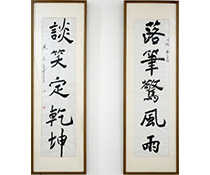 落筆驚風雨
談笑定乾坤